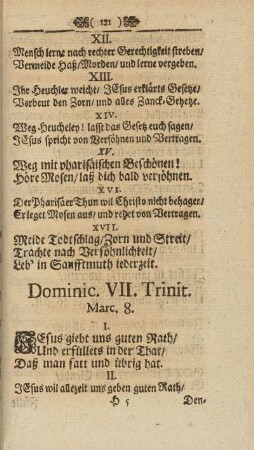 121
XII.
Mensch lerne nach rechter Gerechtigkeit streben/
Vermeide Haß/Morden/und lerne vergeben.
XIII.
Ihr Heuchler weicht/ JEsus erklärts Gesetze/
Verbeut den Zorn/ und alles Zanck-Gehetze.
XIV.
Weg-Heucheley! lasst das Gesetz euch sagen/
JEsus spricht von Versöhnen und Vertragen.
XV.
Weg mit pharisäischen Beschönen!
Höre Mosen/ laß dich bald versöhnen.
XVI.
Der Pharisäer Thun wil Christo nicht behagen/
Er leget Mosen aus/ und redet von Vertragen.
XVII.
Meide Todtschlag/Zorn und Streit/
Trachte nach Versöhnlichkeit/
Leb' in Sanfftmuth iederzeit.
Dominic. VII. Trinit.
Marc. 8.
I.
JEsus giebt uns guten Rath/
Und erfüllets in der That/
Daß man satt und übrig hat.
II.
JEsus wil allezeit uns geben guten Rath/
H 5 Den-